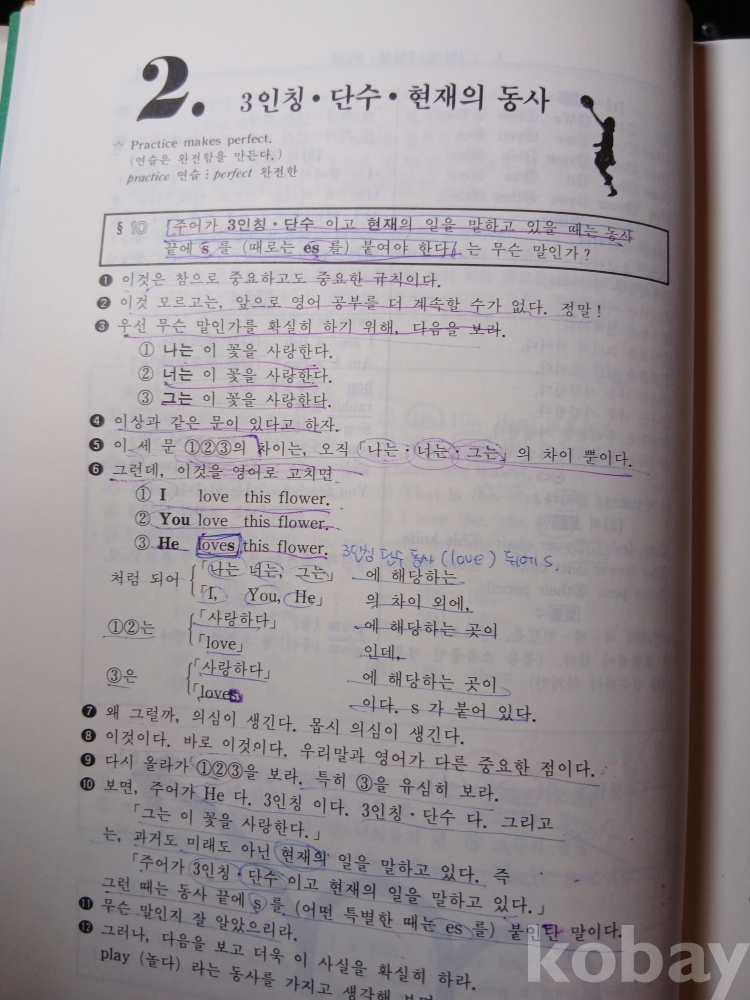 2.
3인칭·단수·현재의 동사
Practice makes perfect.
(연습은 완전함을 만든다.)
practice 연습 : perfect 완전한
§ 10 주어가 3인칭·단수 이고 현재의 일을 말하고 있을 때는 동사
끝에 s 를 (때로는 es 를) 붙여야 한다」는 무슨 말인가?
❶ 이것은 참으로 중요하고도 중요한 규칙이다.
❷ 이것 모르고는, 앞으로 영어 공부를 더 계속할 수가 없다. 정말!
❸ 우선 무슨 말인가를 확실히 하기 위해, 다음을 보라.
① 나는 이 꽃을 사랑한다.
② 너는 이 꽃을 사랑한다.
③ 그는 이 꽃을 사랑한다.
❹ 이상과 같은 문이 있다고 하자.
❺ 이 세 문 ①②③의 차이는, 오직 「나는·너는·그는」의 차이 뿐이다.
❻ 그런데, 이것을 영어로 고치면
① I love this flower.
② You love this flower.
③ He loves this flower. 3인칭 단수 동사 (love) 뒤에 s.
처럼 되어 「나는 너는, 그는」 에 해당하는
「I, You, He」 의 차이 외에,
①②는 「사랑하다」 에 해당하는 곳이
「love」 인데,
③은 「사랑하다」 에 해당하는 곳이
「loves」 이다. s 가 붙어 있다.
❼ 왜 그럴까, 의심이 생긴다. 몹시 의심이 생긴다.
❽ 이것이다. 바로 이것이다. 우리말과 영어가 다른 중요한 점이다.
❾ 다시 올라가 ①②③을 보라. 특히 ③을 유심히 보라.
❿ 보면, 주어가 He 다. 3인칭 이다. 3인칭·단수 다. 그리고
「그는 이 꽃을 사랑한다.」
는, 과거도 미래도 아닌 현재의 일을 말하고 있다. 즉
「주어가 3인칭·단수 이고 현재의 일을 말하고 있다.」
그런 때는 동사 끝에 s 를 (어떤 특별한 때는 es 를) 붙인단 말이다.
⓫ 무슨 말인지 잘 알았으리라.
⓬ 그러나, 다음을 보고 더욱 이 사실을 확실히 하라.
play (놀다) 라는 동사를 가지고 생각해 보면
kobay